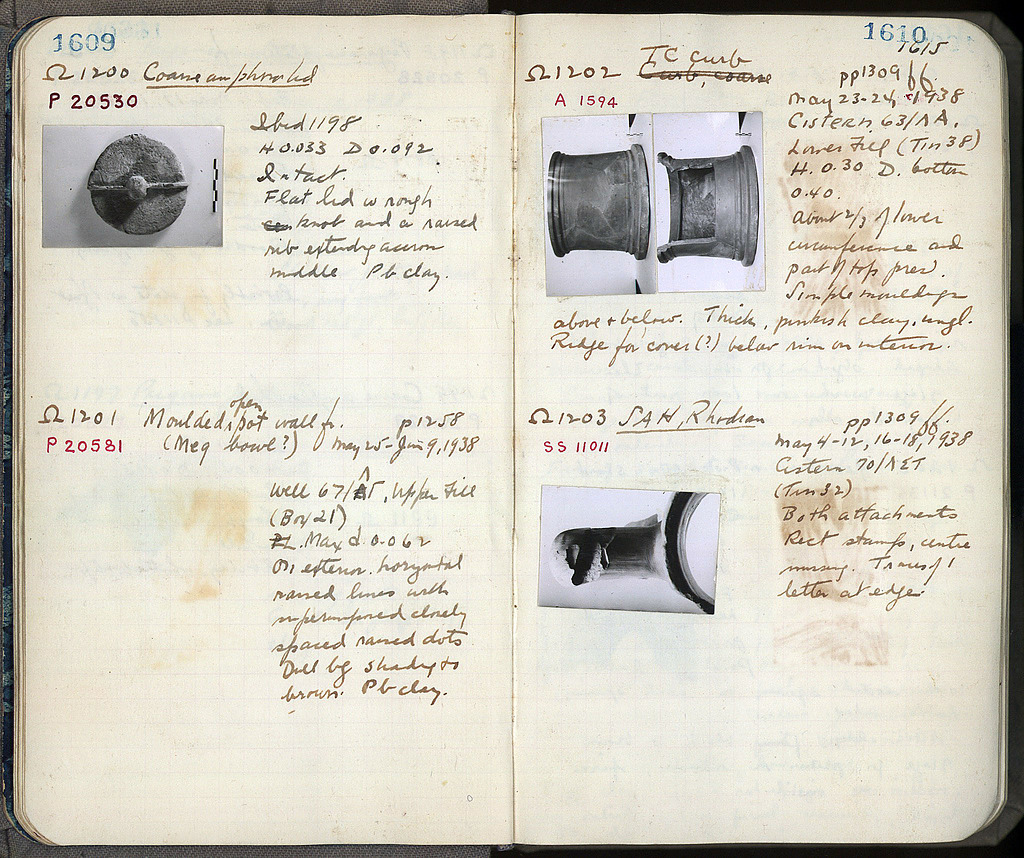 1609
Ω 1200 Coarse amphora lid
P 20530
Ibid 1198
H 0.033 D 0.092
Intact.
Flat lid w rough
knob and a raised
rib extending across
middle Pb clay.
Ω 1201 Moulded open pot wall fr. p 1258
P 20581 (Meg bowl?) May 25-Jun 9, 1938
Well 67/ΛΓ, Upper Fill
(Box 21)
Max d. 0.062
On exterior horizontal
raised lines with
superimposed closely
spaced raised dots
Dull bg shading to
brown. Pb clay.
1610
1615
Ω 1202 TC curb pp 1309 ff.
Curb, coarse
A 1594
May 23-24, 1938
Cistern, 63/ΛΑ,
Lower Fill (Tin 38)
H. 0.30 D. bottom
0.40
About 2/3 of lower
circumference and
part of top pres'd.
Simple mouldings
above + below. Thick, pinkish clay, ungl.
Ridge for cover (?) below rim on interior.
Ω 1203 SAH, Rhodian pp 1309 ff.
SS 11011
May 4-12, 16-18, 1938
Cistern 70/
(Tin 32)
Both attachments
Rect stamp, centre
missing. Traces of 1
letter at edge.